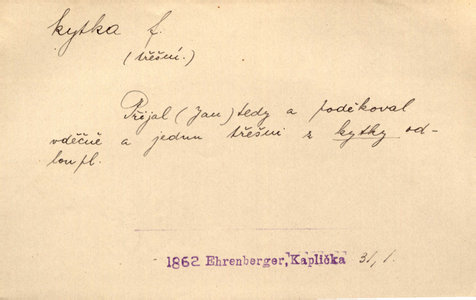 kytka f.
(třešní.)
Přijal (Jan) tedy a poděkoval
vděčně a jednu třešni z kytky od-
loupl.
1862 Ehrenberger, Kaplička 31, 1.